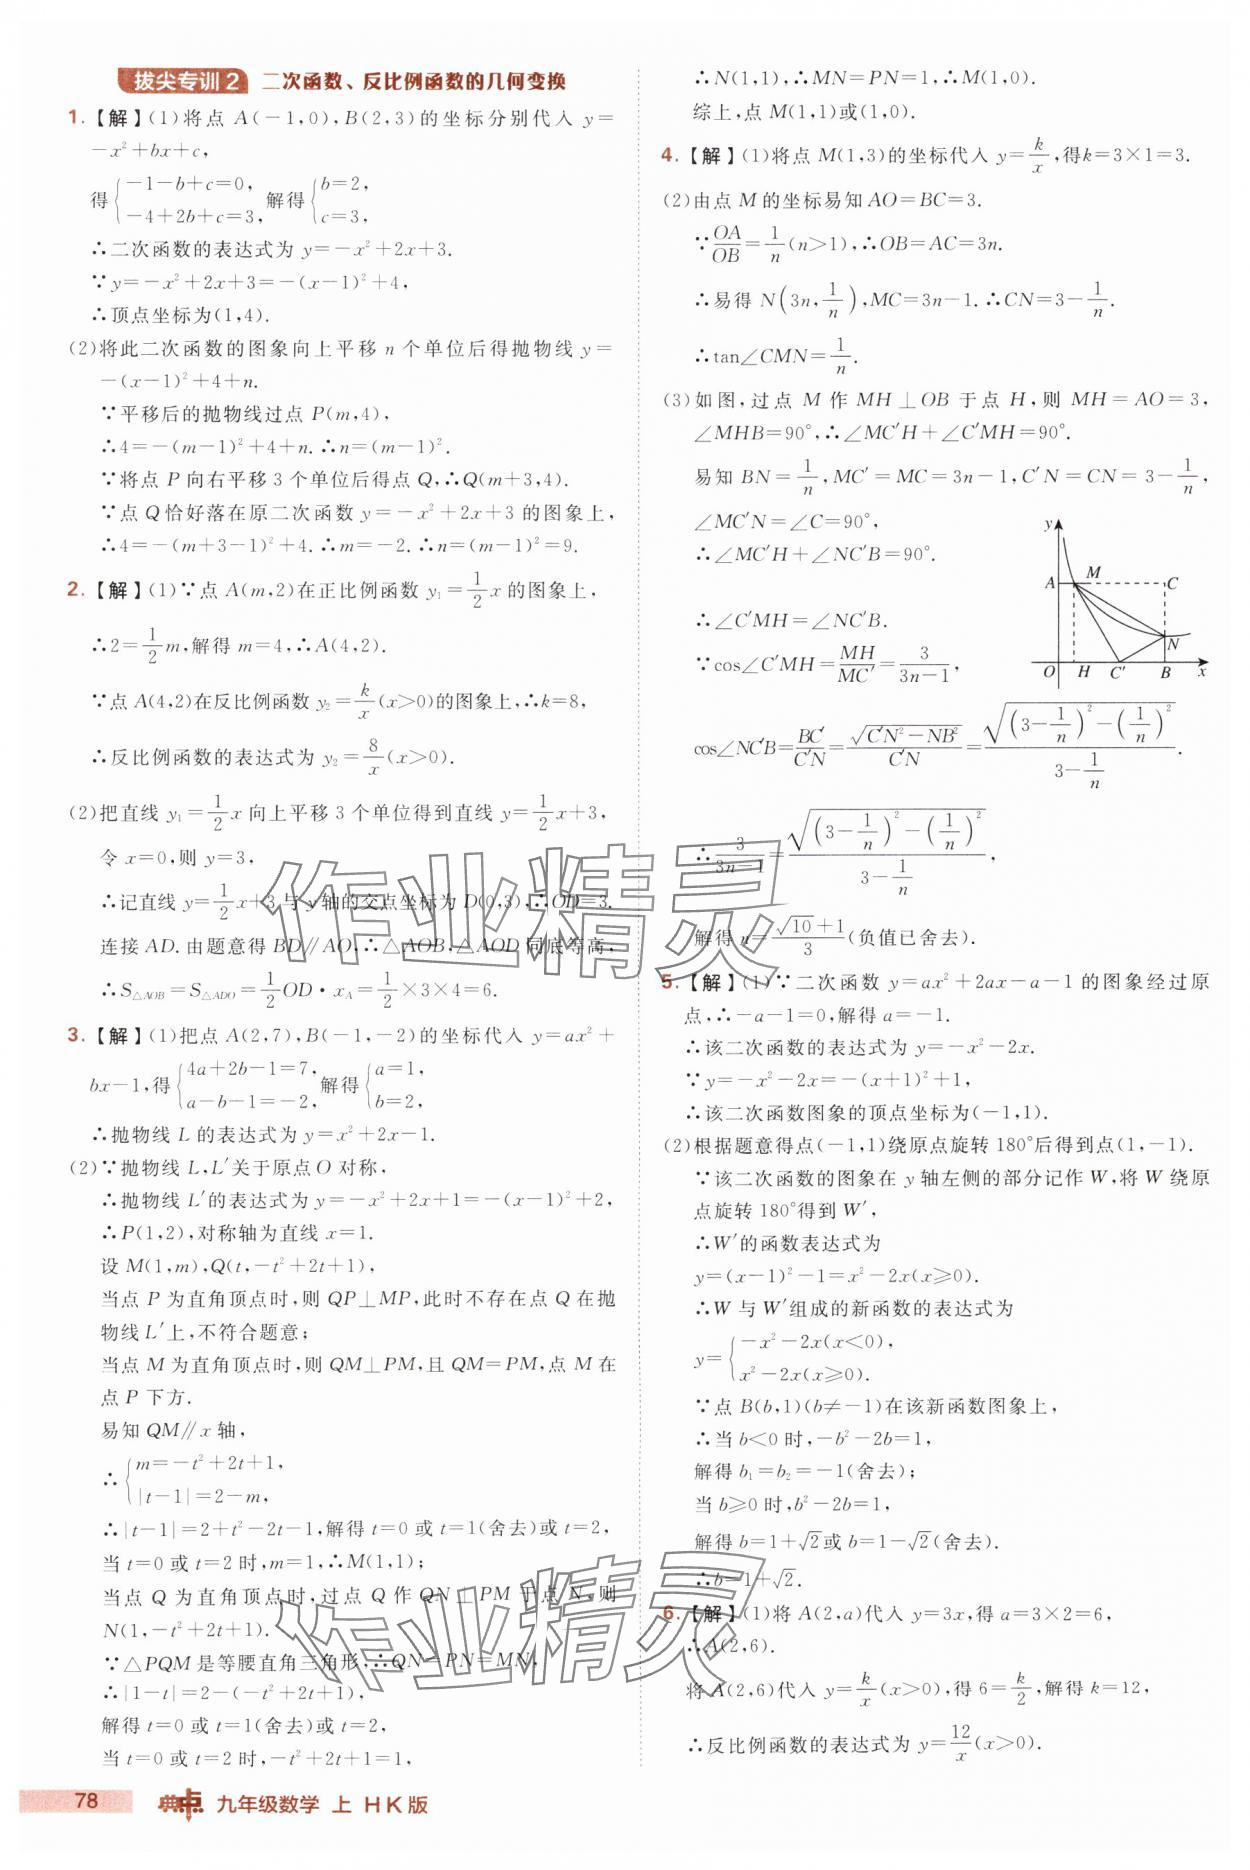 拔尖专训2 二次函数、反比例函数的几何变换
1.【解】(1)将点 A(-1,0),B(2,3)的坐标分别代入 y=
-x²+bx+c,
得{-1-b+c=0, -4+2b+c=3, 解得{b=2, c=3,
∴二次函数的表达式为 y=-x²+2x+3.
∵y=-x²+2x+3=-(x-1)²+4,
∴顶点坐标为(1,4).
(2)将此二次函数的图象向上平移 n 个单位后得抛物线 y=
-(x-1)²+4+n.
∵平移后的抛物线过点 P(m,4),
∴4=-(m-1)²+4+n.∴n=(m-1)².
∵将点 P 向右平移 3 个单位后得点 Q,∴Q(m+3,4).
∵点 Q 恰好落在原二次函数 y=-x²+2x+3 的图象上,
∴4=-(m+3-1)²+4.∴m=-2.∴n=(m-1)²=9.
2.【解】(1)∵点 A(m,2)在正比例函数 y₁=1/2 x 的图象上,
∴2=1/2 m,解得 m=4,∴A(4,2).
∵点 A(4,2)在反比例函数 y₂=k/x(x>0)的图象上,∴k=8,
∴反比例函数的表达式为 y₂=8/x(x>0).
(2)把直线 y₁=1/2 x 向上平移 3 个单位得到直线 y=1/2 x+3,
令 x=0,则 y=3,
∴记直线 y=1/2 x+3 与 y 轴的交点坐标为 D(0,3),∴OD=3.
连接 AD.由题意得 BD∥AO,∴△AOB,△AOD 同底等高,
∴S△AOB=S△ADO=1/2 OD·xA=1/2×3×4=6.
3.【解】(1)把点 A(2,7),B(-1,-2)的坐标代入 y=ax²+
bx-1,得{4a+2b-1=7, a-b-1=-2, 解得{a=1, b=2,
∴抛物线 L 的表达式为 y=x²+2x-1.
(2)∵抛物线 L,L′关于原点 O 对称,
∴抛物线 L′的表达式为 y=-x²+2x+1=-(x-1)²+2,
∴P(1,2),对称轴为直线 x=1.
设 M(1,m),Q(t,-t²+2t+1),
当点 P 为直角顶点时,则 QP⊥MP,此时不存在点 Q 在抛
物线 L′上,不符合题意;
当点 M 为直角顶点时,则 QM⊥PM,且 QM=PM,点 M 在
点 P 下方.
易知 QM∥x 轴,
∴{m=-t²+2t+1, |t-1|=2-m,
∴|t-1|=2+t²-2t-1,解得 t=0 或 t=1(舍去)或 t=2,
当 t=0 或 t=2 时,m=1,∴M(1,1);
当点 Q 为直角顶点时,过点 Q 作 QN⊥PM 于点 N,则
N(1,-t²+2t+1).
∵△PQM 是等腰直角三角形,∴QN=PN=MN,
∴|1-t|=2-(-t²+2t+1),
解得 t=0 或 t=1(舍去)或 t=2,
当 t=0 或 t=2 时,-t²+2t+1=1,
∴N(1,1),∴MN=PN=1,∴M(1,0).
综上,点 M(1,1)或(1,0).
4.【解】(1)将点 M(1,3)的坐标代入 y=k/x,得k=3×1=3.
(2)由点 M 的坐标易知 AO=BC=3.
∵OA/OB=1/n(n>1),∴OB=AC=3n.
∴易得 N(3n,1/n),MC=3n-1.∴CN=3-1/n.
∴tan∠CMN=1/n.
(3)如图,过点 M 作 MH⊥OB 于点 H,则 MH=AO=3,
∠MHB=90°,∴∠MC′H+∠C′MH=90°.
易知 BN=1/n,MC′=MC=3n-1,C′N=CN=3-1/n,
∠MC′N=∠C=90°,
∴∠MC′H+∠NC′B=90°.
∴∠C′MH=∠NC′B.
∵cos∠C′MH=MH/MC′=3/(3n-1),
y
A M C
N
O H C′ B x
cos∠NC′B=BC′/C′N=√(C′N²-NB²)/C′N=√((3-1/n)²-(1/n)²)/(3-1/n).
∴3/(3n-1)=√((3-1/n)²-(1/n)²)/(3-1/n),
解得 n=(√10+1)/3(负值已舍去).
5.【解】(1)∵二次函数 y=ax²+2ax-a-1 的图象经过原
点,∴-a-1=0,解得 a=-1.
∴该二次函数的表达式为 y=-x²-2x.
∵y=-x²-2x=-(x+1)²+1,
∴该二次函数图象的顶点坐标为(-1,1).
(2)根据题意得点(-1,1)绕原点旋转 180°后得到点(1,-1).
∵该二次函数的图象在 y 轴左侧的部分记作 W,将 W 绕原
点旋转 180°得到 W′,
∴W′的函数表达式为
y=(x-1)²-1=x²-2x(x≥0).
∴W 与 W′组成的新函数的表达式为
y={-x²-2x(x<0), x²-2x(x≥0).
∵点 B(b,1)(b≠-1)在该新函数图象上,
∴当 b<0 时,-b²-2b=1,
解得 b₁=b₂=-1(舍去);
当 b≥0 时,b²-2b=1,
解得 b=1+√2或 b=1-√2(舍去).
∴b=1+√2.
6.【解】(1)将 A(2,a)代入 y=3x,得 a=3×2=6,
∴A(2,6).
将 A(2,6)代入 y=k/x(x>0),得 6=k/2,解得 k=12,
∴反比例函数的表达式为 y=12/x(x>0).
作业精灵
作业精灵
78 典点 九年级数学 上 HK版